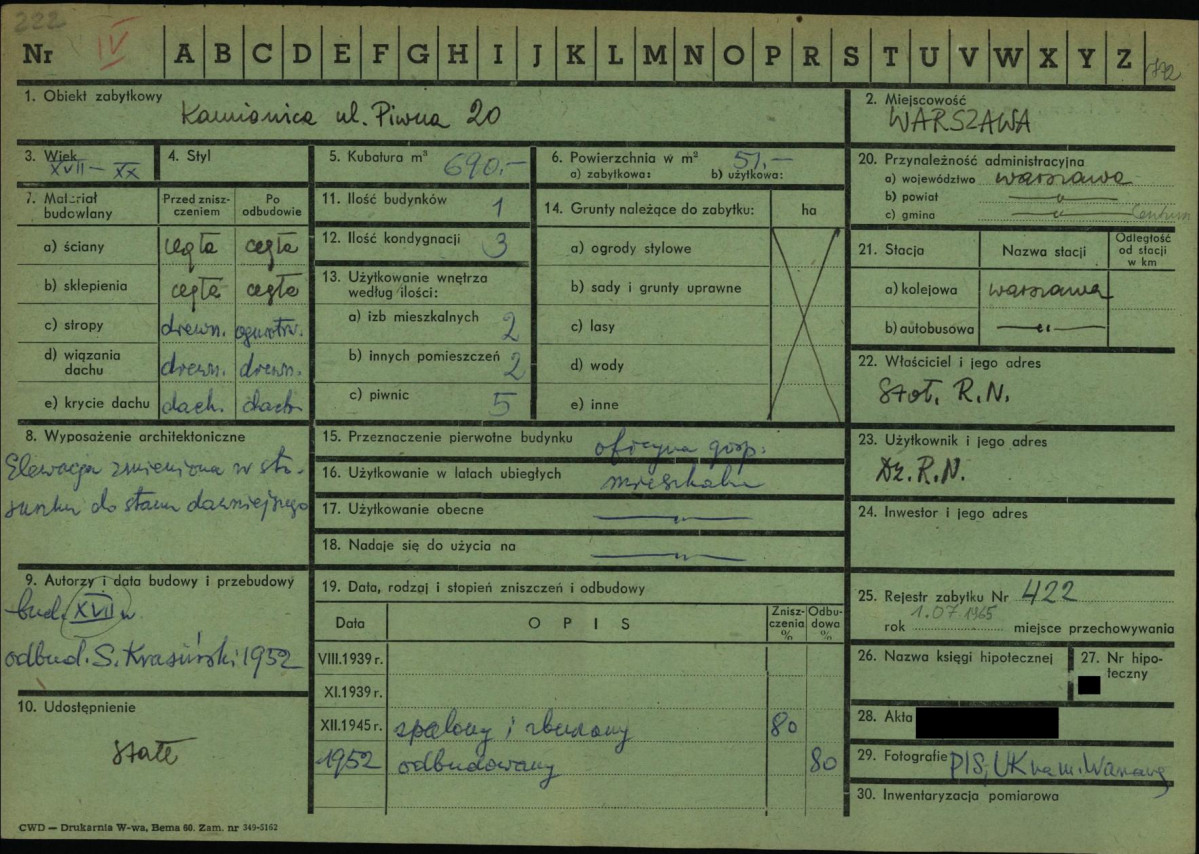 222
Nr IV A B C D E F G H I J K L M N O P R S T U V W X Y Z 772
1. Obiekt zabytkowy
Kamienica ul. Piwna 20
2. Miejscowość
WARSZAWA
3. Wiek
XVII – XX
4. Styl
5. Kubatura m³ 690,–
6. Powierzchnia w m² 51,–
a) zabytkowa: b) użytkowa:
7. Materiał budowlany
Przed znisz-
czeniem
Po
odbudowie
a) ściany cegła cegła
b) sklepienia cegła cegła
c) stropy drewn. ogniotrw.
d) wiązania
dachu drewn. drewn.
e) krycie dachu dach. dach.
8. Wyposażenie architektoniczne
Elewacja zmieniona w sto-
sunku do stanu dawniejszego
9. Autorzy i data budowy i przebudowy
bud. XVII w.
odbud. S. Krasiński 1952
10. Udostępnienie
stałe
11. Ilość budynków 1
12. Ilość kondygnacji 3
13. Użytkowanie wnętrza
według ilości:
a) izb mieszkalnych 2
b) innych pomieszczeń 2
c) piwnic 5
14. Grunty należące do zabytku: ha
a) ogrody stylowe
b) sady i grunty uprawne
c) lasy
d) wody
e) inne
15. Przeznaczenie pierwotne budynku oficyna gosp.
16. Użytkowanie w latach ubiegłych mieszkalne
17. Użytkowanie obecne —"—
18. Nadaje się do użycia na —"—
19. Data, rodzaj i stopień zniszczeń i odbudowy
Data O P I S
Znisz-
czenia
%
Odbu-
dowa
%
VIII.1939 r.
XI.1939 r.
XII.1945 r. spalony i zburzony 80
1952 odbudowany 80
20. Przynależność administracyjna
a) województwo warszawa
b) powiat —"—
c) gmina —"— Centrum
21. Stacja Nazwa stacji
Odległość
od stacji
w km
a) kolejowa warszawa
b) autobusowa —"—
22. Właściciel i jego adres
Stoł. R.N.
23. Użytkownik i jego adres
Dz. R.N.
24. Inwestor i jego adres
25. Rejestr zabytku Nr 422
1.07.1965
rok miejsce przechowywania
26. Nazwa księgi hipotecznej
27. Nr hipo-
teczny
28. Akta
29. Fotografie PIS, UK na m. Warszawę
30. Inwentaryzacja pomiarowa
CWD — Drukarnia W-wa, Bema 60. Zam. nr 349-5162